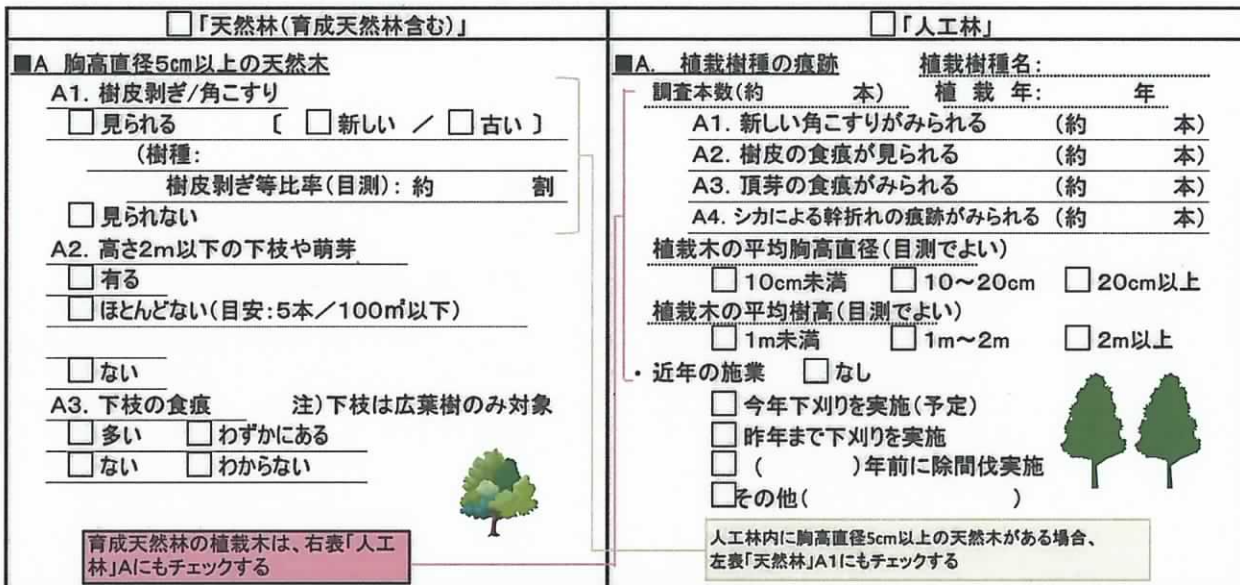 □「天然林(育成天然林含む)」
■A 胸高直径5cm以上の天然木
A1. 樹皮剥ぎ/角こすり
□見られる 〔 □新しい / □古い 〕
(樹種:
樹皮剥ぎ等比率(目測): 約 割
□見られない
A2. 高さ2m以下の下枝や萌芽
□有る
□ほとんどない(目安:5本/100㎡以下)
□ない
A3. 下枝の食痕 注)下枝は広葉樹のみ対象
□多い □わずかにある
□ない □わからない
育成天然林の植栽木は、右表「人工
林」Aにもチェックする
□「人工林」
■A. 植栽樹種の痕跡 植栽樹種名:
調査本数(約 本) 植 栽 年: 年
A1. 新しい角こすりがみられる (約 本)
A2. 樹皮の食痕が見られる (約 本)
A3. 頂芽の食痕がみられる (約 本)
A4. シカによる幹折れの痕跡がみられる (約 本)
植栽木の平均胸高直径(目測でよい)
□10cm未満 □10～20cm □20cm以上
植栽木の平均樹高(目測でよい)
□1m未満 □1m～2m □2m以上
・近年の施業 □なし
□今年下刈りを実施(予定)
□昨年まで下刈りを実施
□( )年前に除間伐実施
□その他( )
人工林内に胸高直径5cm以上の天然木がある場合、
左表「天然林」A1にもチェックする